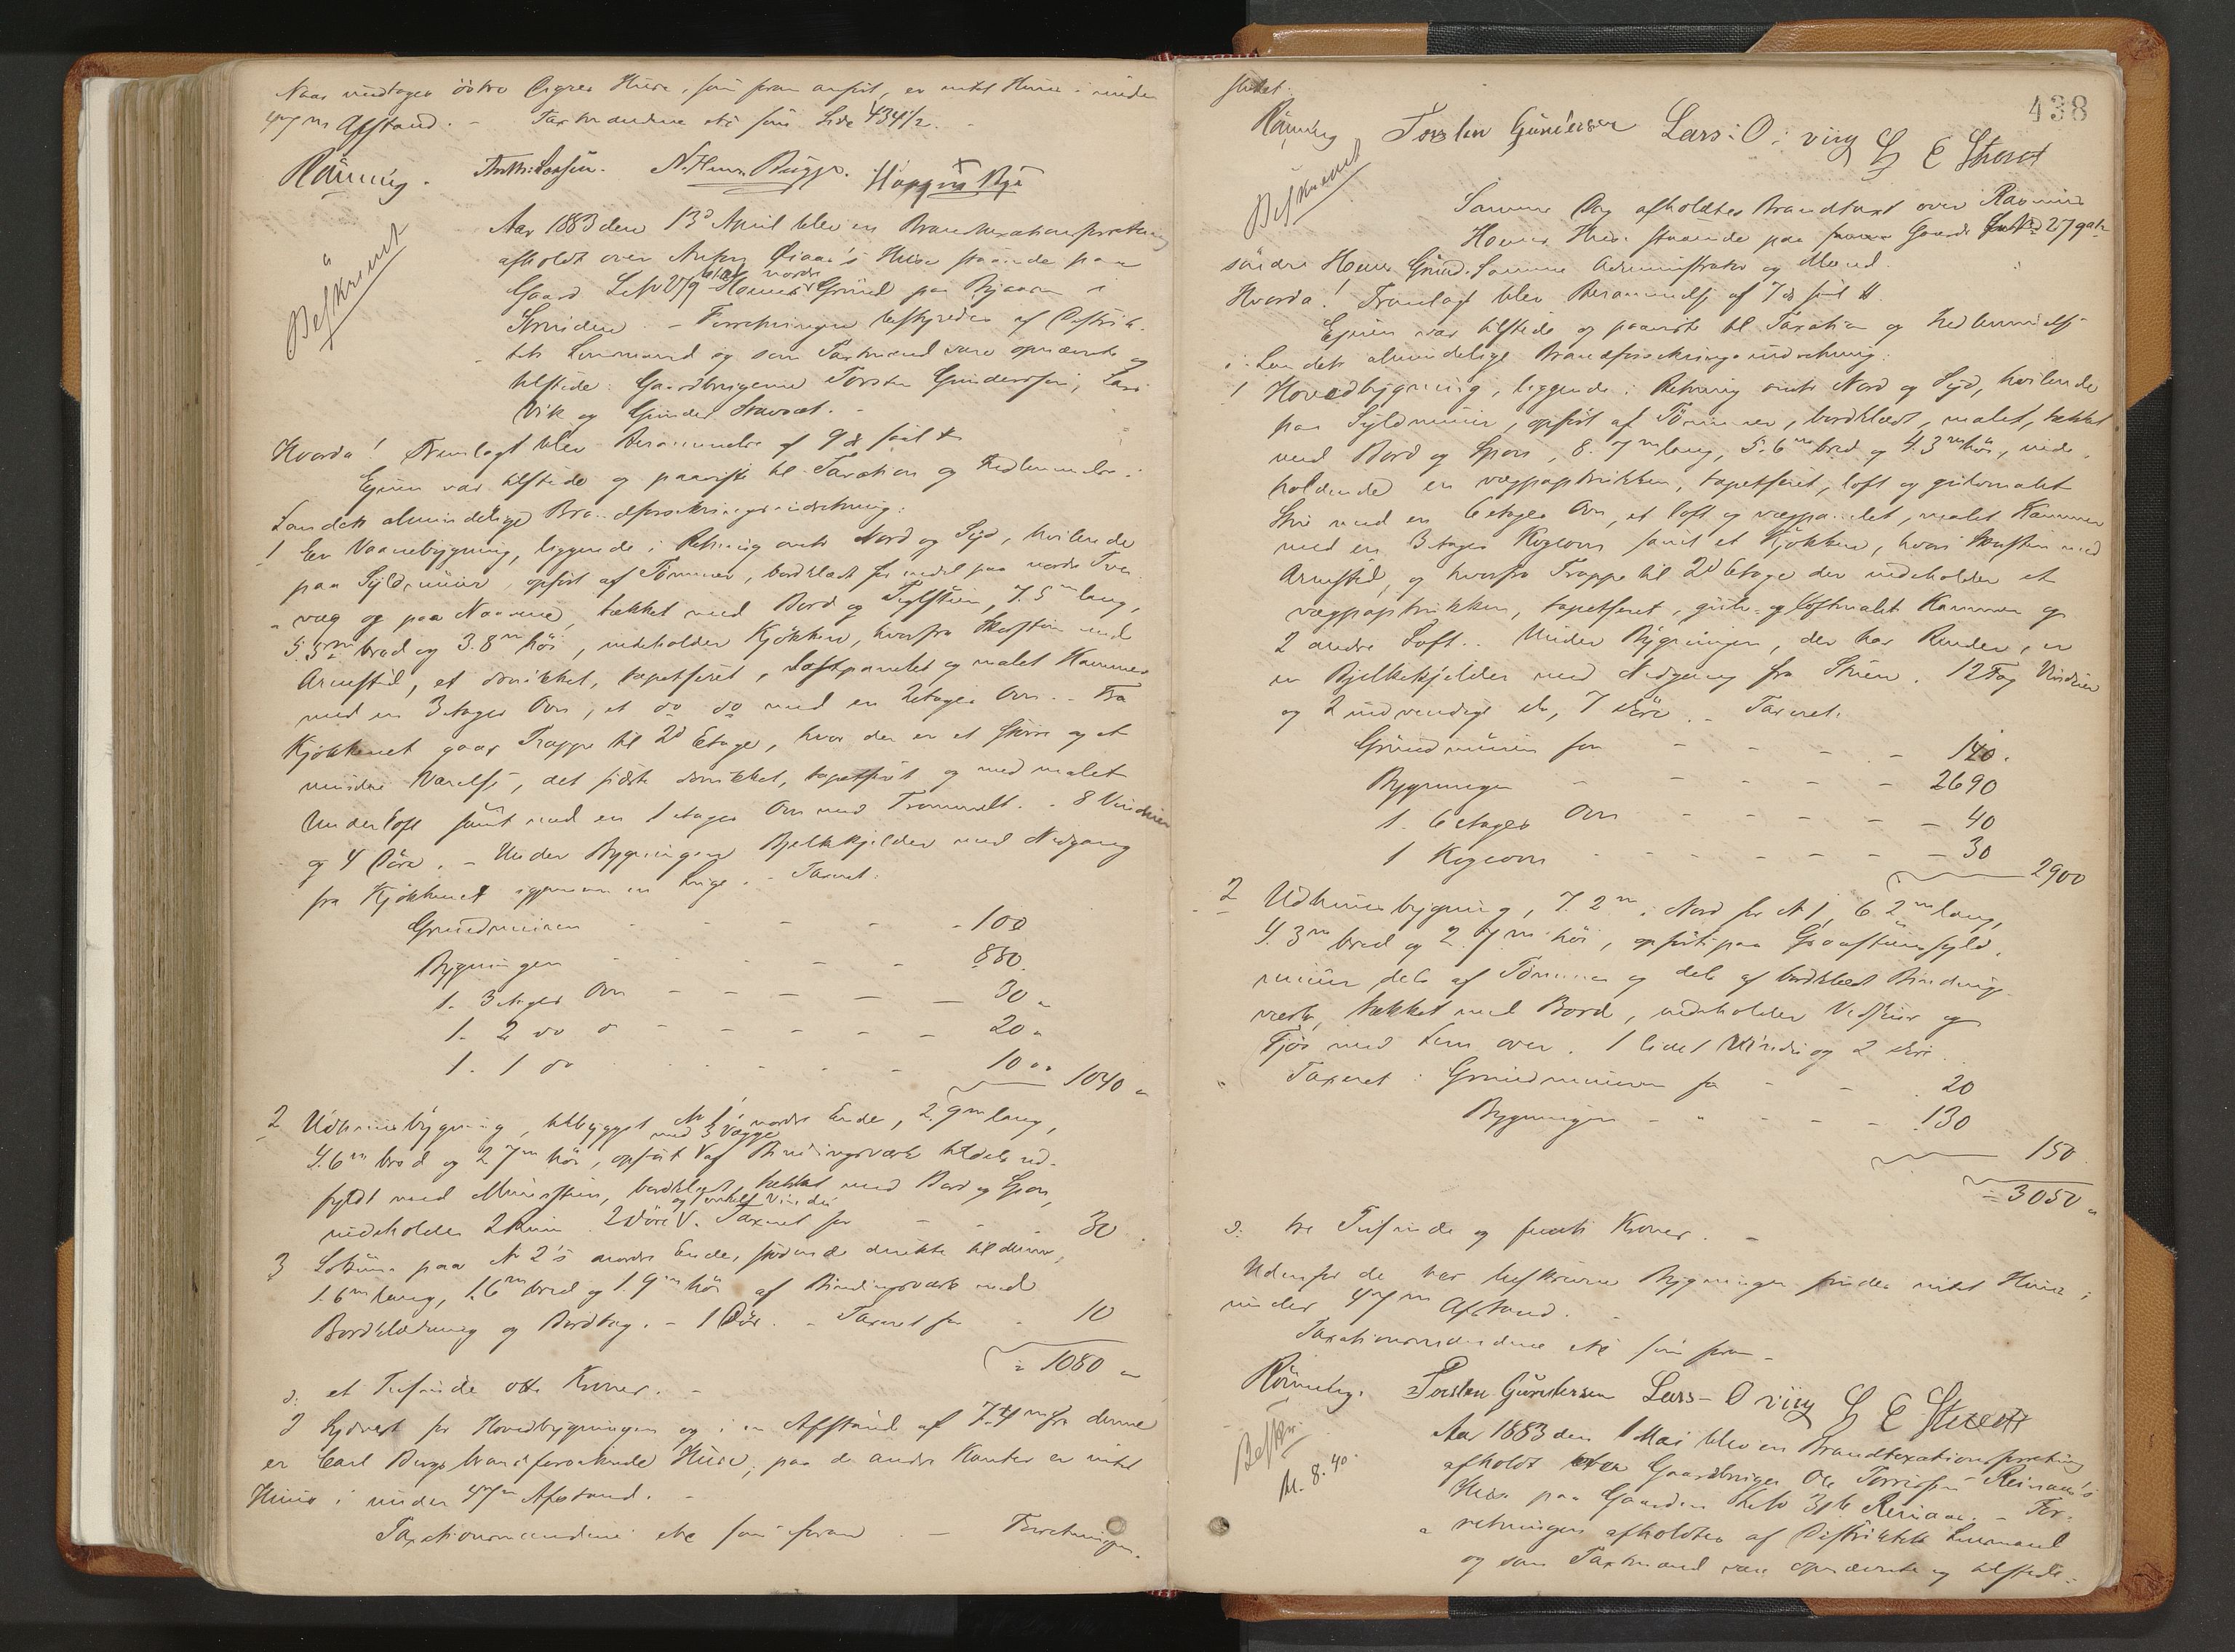 Naar undtages Eieres Huse, som foran anført, er intet Huus i under
Afstand. - Taxtmændene etc som Side 434 1/2. -
Rönning. N. Hans. Bugge.
Beskrevet
Aar 1883 den 13d April blev en Brandtaxationsforretning
afholdt over Huse staaende paa
Gaard Grund paa i
. - Forretningen bestyredes af Distrik-
tets Lensmand og som Taxtmænd vare opnævnte og
tilstede: Gaardbrugerne Torsten Gundersen, Lars
Vik og Gunder .-
Hvorda! Fremlagt blev Berammelse af 9 ds
Eieren var tilstede og paaviste til Taxation og Indlemmelse i
Landets almindelige Brandforsikringsindretning:
1 En Vaanebygning, liggende i Retning omtr Nord og Syd, hvilende
paa Syldmuur, opført af Tömmer, bordklædt for endel paa nordre Tver
væg og paa , tækket med Bord og Taglsteen, 7.5 m lang,
5.5 m bred og 3.8 m höi, indeholder Kjökken, hvorfra Skorsten med
Arnested, et , tapetseret, Loftpanelet og malet Kammer
med en 3 etages Ovn, et do do med en 2 etages Ovn. - Fra
Kjökkenet gaar Trappe til 2d Etage, hvor der er et större og et
mindre Værelse, det sidste , tapetseret og med malet
Underloft samt med en 1 etages Ovn med Trommel. - 8 Vinduer
og 4 Döre. - Under Bygningen Bjelkekjelder med Nedgang
fra Kjökkenet igjennem en . - Taxeret:
Grundmuren - - - - - 100
Bygningen - - - - - 880.
1. 3 etages Ovn - - - - - 30 "
1. 2 do - - - - - 20 "
1. 1 do - - - - - 10 " 1040 "
2 Udhuusbygning, tilbygget No 1's nordre Ende, 2.9 m lang,
4.6 m bred og 2.7 m höi, opført med 3 Vægge af Bindingsværk tildels ud-
fyldt med Muursteen, bordklædt, tækket med Bord og Spon,
indeholder 2 Rum. 2 Döre og enkelt Vindu. Taxeret for - - - 30
3 paa No 2's nordre Ende, stödende direkte til denne,
1.6 m lang, 1.6 m bred og 1.9 m höi af Bindingsværk med
Bordklædning og Bordtag. - 1 Dör. - Taxeret for - 10
= 1080 "
o: et Tusinde otti Kroner. -
I Sydvest for Hovedbygningen og i en Afstand af 7.4 m fra denne
er Carl Bergs brandforsikrede Huse; paa de andre Kanter er intet
Huus i under Afstand. -
Taxationsmændene etc som foran . - Forretningen
438
sluttet.
Rönning Torsten Gundersen Lars: O: viig G E
Beskrevet
Samme Dag afholdtes Brandtaxt over Rasmus
Huse staaende paa Gaards
söndre Grund. Samme Administrator og Mænd.
Hvorda! Fremlagt blev Berammelse af 7 ds
Eieren var tilstede og paaviste til Taxation og Indlemmelse
i Landets almindelige Brandforsikringsindretning:
1 Hovedbygning, liggende i Retning omtr Nord og Syd, hvilende
paa Syldmuur, opfört af Tömmer, bordklædt, malet, tækket
med Bord og Spon, 8.7 m lang, 5.6 m bred og 4.3 m höi, inde-
holdende en , tapetseret, loft og gulvmalet
Stue med en 6 etages Ovn, et loft og vægpanelet, malet Kammer
med en 3 etages Kogeovn samt et Kjökken, hvori Skorsten med
Arnested, og hvorfra Trappe til 2d Etage der indeholder et
, tapetseret, gulv- og loftmalet Kammer og
2 andre Loft. - Under Bygningen, der har Render, er
en Bjelkekjelder med Nedgang fra Stuen. 12 Fag Vinduer
og 2 indvendige do, 7 Döre. - Taxeret:
Grundmuren for - - - - - 140.
Bygningen - - - - - 2690
1. 6 etages Ovn - - - - - 40
1 Kogeovn - - - - - 30 2900
2 Udhuusbygning, 7.2 m i Nord for No 1, 6.2 m lang,
4.3 m bred og 2.7 m höi, opfört paa Graasteens Syld-
muur, dels af Tömmer og dels af bordklædt Bindings-
værk, tækket med Bord, indeholder Vedskuur og
Fjös med Lem over. 1 lidet Vindu og 2 Döre.
Taxeret: Grundmuren for - - 20
Bygningen - - - - 130
150
= 3050 "
o: tre Tusinde og femti Kroner. -
Udenfor de her beskrevne Bygninger findes intet Huus i
under Afstand. -
Taxationsmændene etc som foran -
Rönning. Torsten Gundersen Lars - O viig G E
Beskr.
kl. 8.40.
Aar 1883 den 1 Mai blev en Brandtaxationsforretning
afholdt over Gaardbruger Ole
Huse paa Gaarden . - For-
retningen afholdtes af Distriktets Lensmand
og som Taxtmænd vare opnævnte og tilstede: